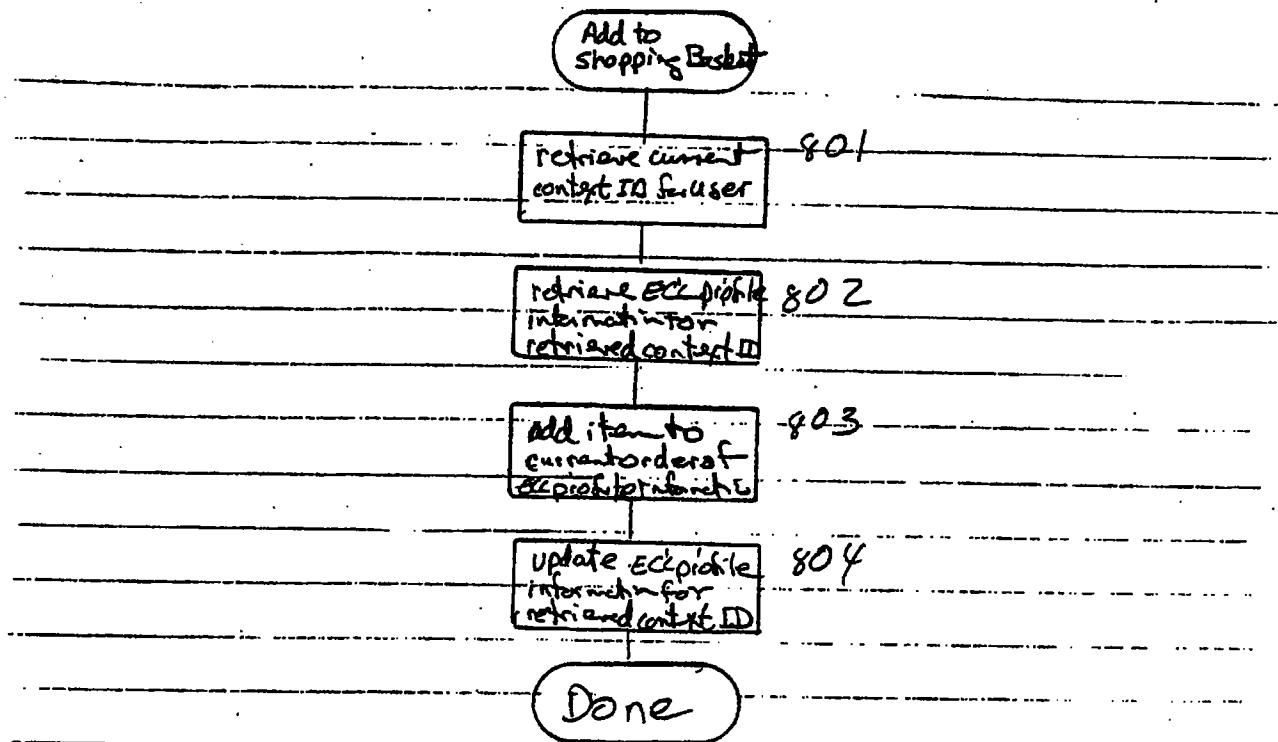 Add to
shopping Basket
retrieve current
context ID for user
801
retrieve ECL profile
information for
retrieved context ID
802
add item to
current order of
ECL profile informatio
803
update ECL profile
information for
retrieved context ID
804
Done